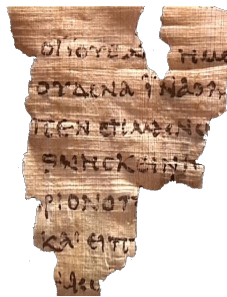 ΟΙ ΙΟΥΔΑΙ ΗΜΕ
ΟΥΔΕΝΑ ΙΝΑ Ο ΛΟ
ΠΕΝ ϹΗΜΑΙΝΩ
ΘΝΗϹΚΕΙΝ
ΡΙΟΝ Ο Π
ΚΑΙ ΕΙΠ